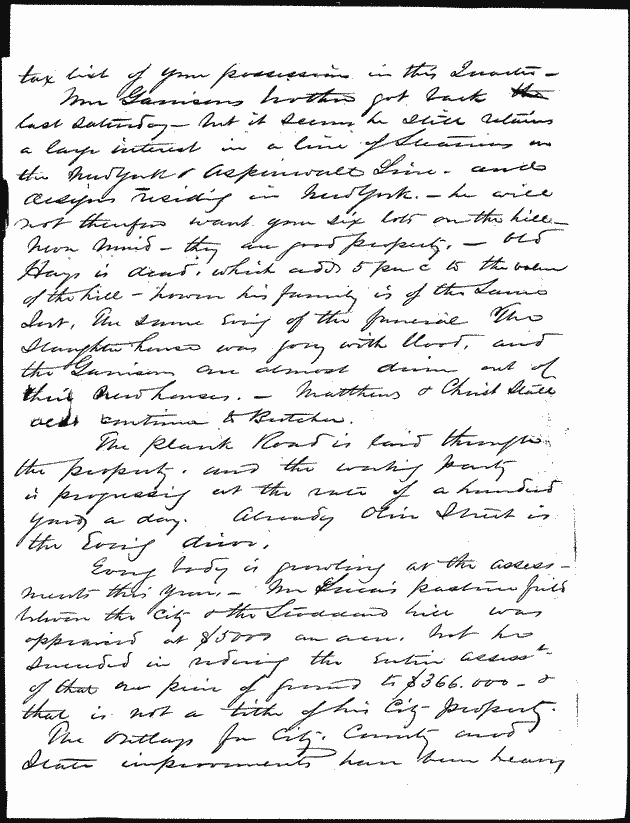 tax list of your possessions in this Quarter –
Mr Garrisons brother got back the
last Saturday – but it seems he still retains
a large interest in a line of Steamers on
the New York & Aspinwall Line. and
designs residing in New York. – he will
not therefore want your six lots on the hill –
Never mind – they are good property. – Old
Hays is dead. which adds 5 per c to the value
of the hill – however his family is of the same
sort. The same Evng of the funeral The
Slaughter house was gory with blood, and
the Garrisons are almost driven out of
their new houses. – Matthews & Christ Stall
continue to Butcher.
The Plank Road is laid through
the property. and the working party
is progressing at the rate of a hundred
yards a day. Already Olive Street is
the Evning drive.
Every body is growling at the assess-
ments this year. – Mr Lucas's pasture field
between the City & the Stoddard hill was
appraised at $5000 an acre. but he
succeeded in reducing the entire assesst.
of that one piece of ground to $366.000 – &
that is not a tithe of his City property.
The Outlays for City. County and
State improvements have been heavy